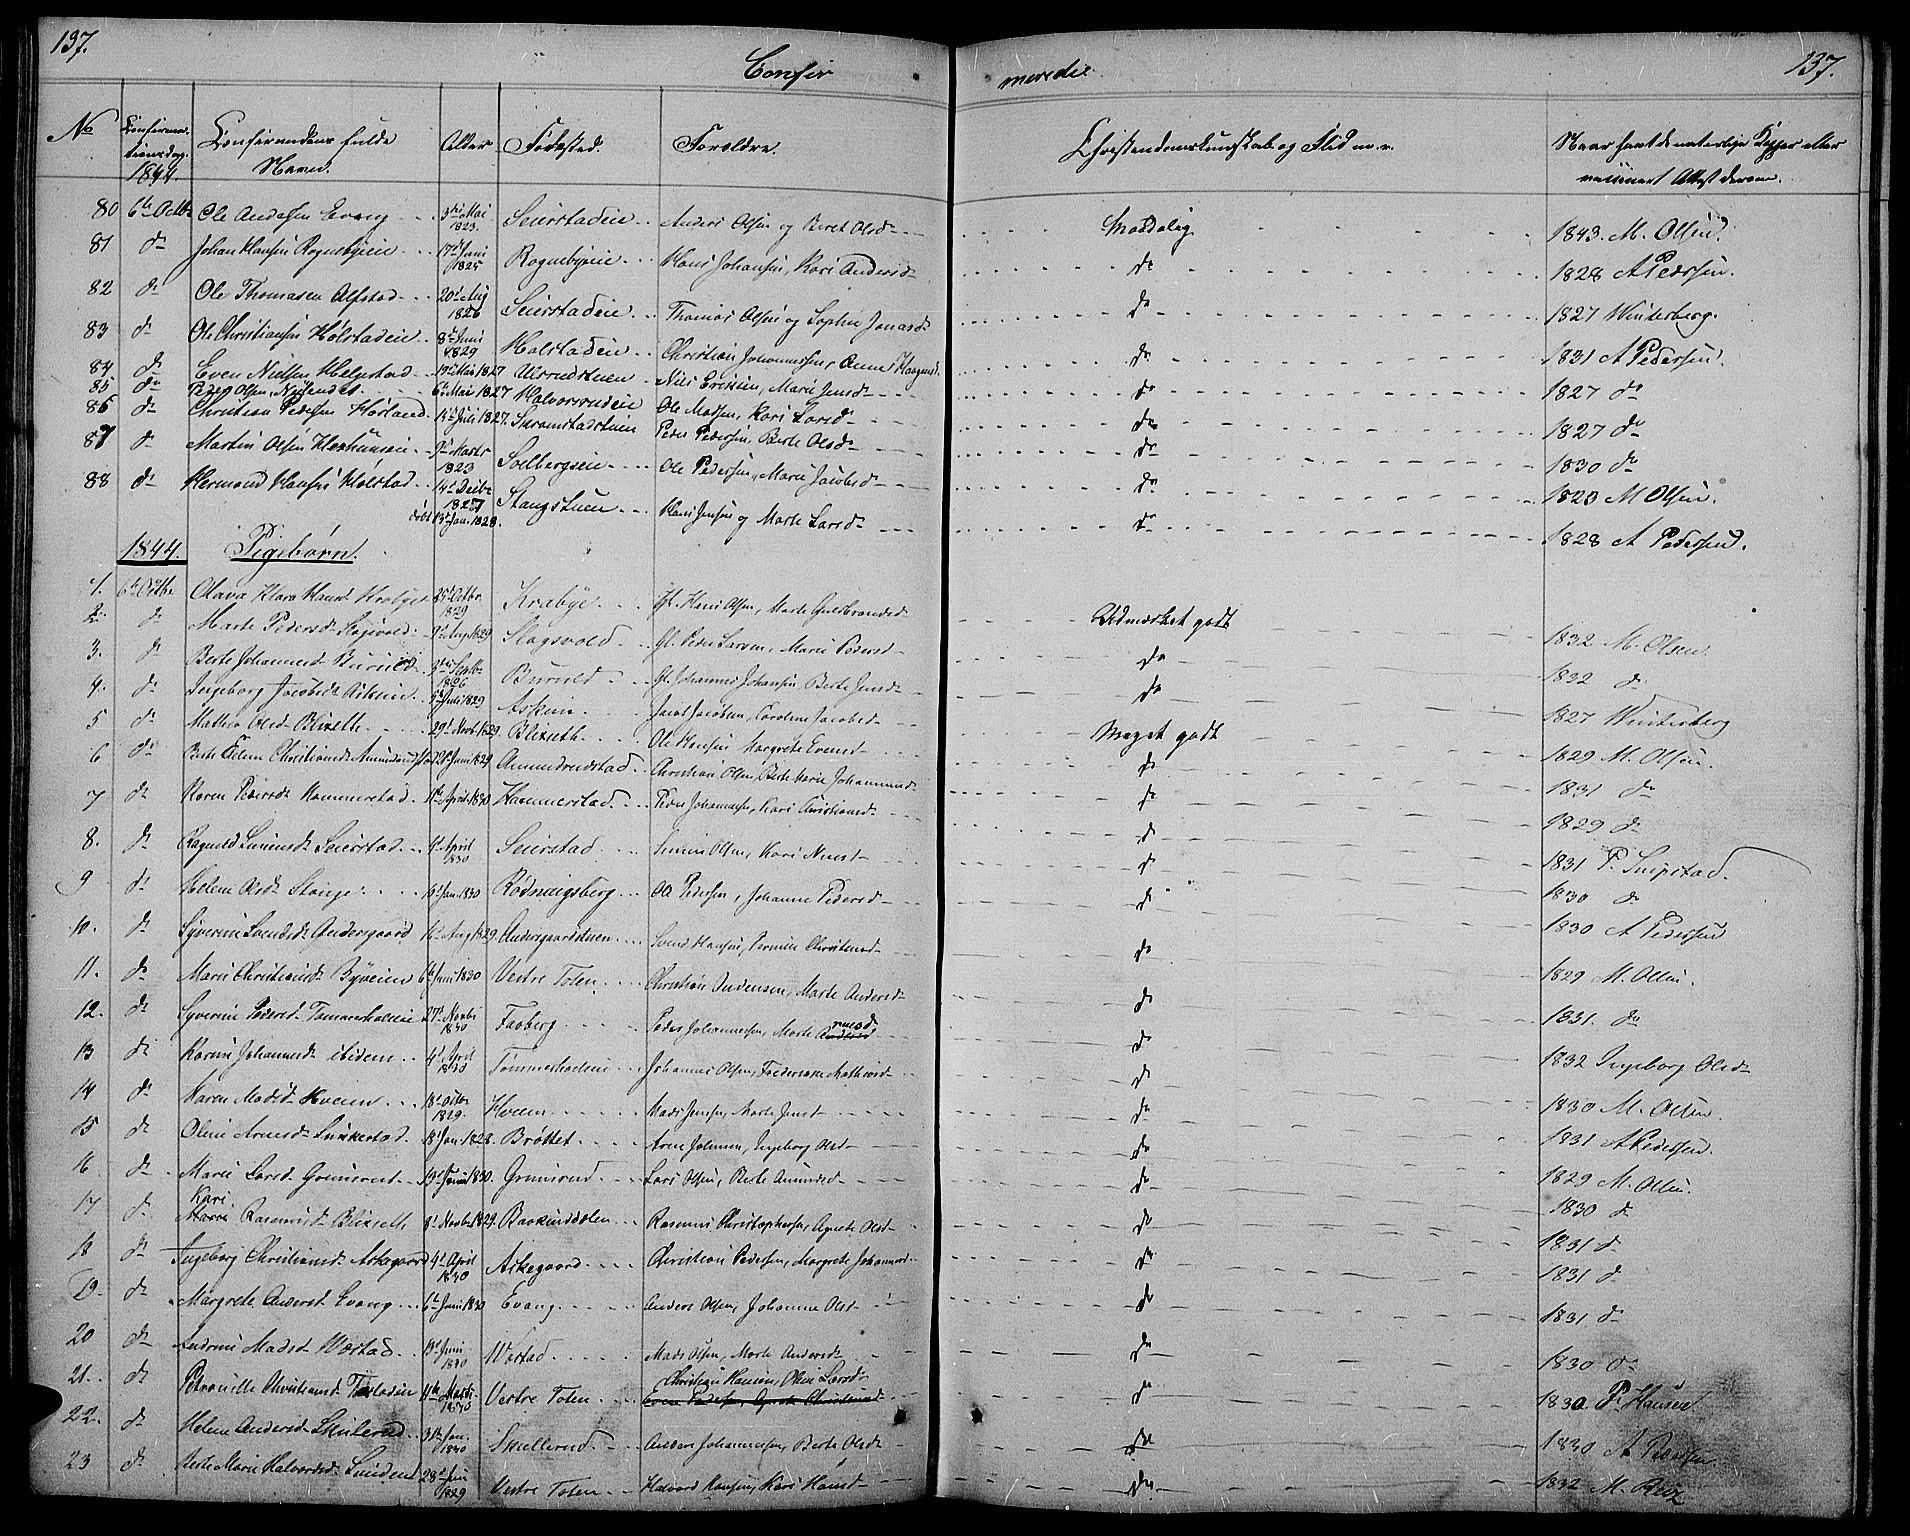 137.
Confir
meredie.
137.
No
Confirma-
tionsdag.
1844.
Confirmandens fulde
Navn.
Alder
Fødested.
Forældre.
Christendomskundskab og Flid m. v.
Naar havt de naturlige Kopper eller
vaccineret Attest derom.
80 6te Octbr Ole Andersen Evang 3die Mai 1823. Seierstadeie Anders Olsen og Beret Olsd Maadelig 1843. M. Olsen.
81 do Johan Hansen Rognebyeie 17de Juni 1825 Rognebyeie Hans Johansen, Kari Andersd do 1828 A Pedersen.
82 do Ole Thomasen Alfstad 20d Aug 1826 Seierstadeie Thomas Olsen og Sophie Jonasd do 1827 Winterberg.
83 do Ole Christiansen Holstadeie 8d Juni 1829 Holstadeie Christian Johannessen, Anne Haagensd do 1831 A Pedersen
84 do Even Nielsen Helgestad 19d Mai 1827 Ulsrudstuen Niels Evensen, Marie Jensd do 1827 do
85 do Peder Olsen Nøisendet 6te Mai 1827 Halvorsrudeie Ole Madsen, Kari Larsd do 1827 do
86 do Christian Pedersen Horland 14d Juli 1827. Skramstadstuen Peder Pedersen, Berte Olsd do 1830 do
87 do Martin Olsen Hexhumeie 9d Marts 1823 Solbergseie Ole Pedersen, Marie Jacobsd do 1823 M Olsen.
88 do Hermand Hansen Holstad 14d Decbr 1827 døbt 13d Jan. 1828. Stangstuen Hans Jensen og Marte Larsd do 1828 A Pedersen.
1844. Pigebørn.
1. 6te Octbr Olava Klara Hansd Krabye 25d Octbr 1829 Krabye Gf. Hans Olsen, Marte Guldbrandsd Udmærket godt 1832 M. Olsen
2. do Marte Pedersd Slagsvold 9d Aug 1829 Slagsvold Gf. Peder Larsen, Marie Pedersd do 1832 do
3. do Berte Johannesd Buruld 3die Septbr 1826 Buruld Gf. Johannes Johansen, Berte Jensd do 1827 Winterberg
4. do Ingeborg Jacobsd Askeie 5d Juli 1829 Askeie Jacob Jacobsen, Caroline Jacobsd Meget godt 1829 M. Olsen.
5 do Mathea Olsd Blixeth 29d Novb 1829. Blixeth Ole Hansen Margrete Evensd do 1831 do
6 do Berte Helene Christiansd Amundrudstad 28d Juni 1829 Amundrudstad Christian Olsen, Berte Marie Johannesd do 1829 do
7 do Karen Pedersd Hammerstad 11te April 1830 Hammerstad Peder Johannesen, Kari Christiansd do 1831 P. Seierstad.
8. do Ragnild Simensd Seierstad 4d April 1830 Seierstad Simen Olsen, Kari Nilsd do 1830 do
9 do Helene Olsd Stange 6d Jan. 1830 Rødningsberg Ole Pedersen, Johanne Pedersd do 1830 A Pedersen
10. do Syverine Svendsd Andersgaard 16d Aug 1829 Andersgaardstuen Svend Hansen, Pernille Christensd do 1829 M. Olsen.
11. do Marie Christiansd Byeeie 6te Juni 1830 Vestre Toten Christian Andersen, Marte Andersd do 1831. do
12. do Syverine Pedersd Tømmerholeie 27d Novbr 1830 Faaberg Peder Johannesen, Marte Andersd do 1832 Ingeborg Olsd
13 do Karine Johannesd ibidem 4d April 1830 Tømmerholeie Johannes Olsen, Frederikke Mathiesd do 1830 M. Olsen.
14 do Karen Madsd Hveem 18d Octbr 1829. Hveem Mads Jensen, Marte Jensd do 1831 A Pedersen.
15 do Oline Arnesd Lunkestad 18d Jan. 1828. Brøttet Arne Johnsen, Ingeborg Olsd do 1829 M. Olsen.
16. do Marie Larsd Grimsrud 13d Juni 1830. Grimsrud Lars Olsen, Berte Amundsd do 1830 do
17 do Kari Rasmusd Blixeth 8d Novbr 1829. Bakkindalen Rasmus Christophersen, Agnete Olsd do 1831 do
18 do Ingeborg Christiansd Askegaard 4d April 1830 Askegaard Christian Pedersen, Margrete Johannesd do 1831 do
19. do Margrete Andersd Evang 6te Juni 1830 Evang Anders Olsen, Johanne Olsd do 1831 do
20 do Andrine Madsd Worstad 13d Juni 1830 Worstad Mads Olsen, Marte Andersd do 1830 do
21. do Petronille Christiansd 14de Marts 1830 Vestre Toten Christian Hansen, Oline Larsd do 1830 P. Hansen
Even Pedersen, Agnete Christiansd
22. do Helene Andersd Skullerud 31te Jan. 1830 Skullerud Anders Johannesen, Berte Olsd do 1830 A Pedersen
23 do Berte Marie Halvorsd Lunden 28d Juni 1829 Vestre Toten Halvord Hansen, Kari Hansd do 1832 M.